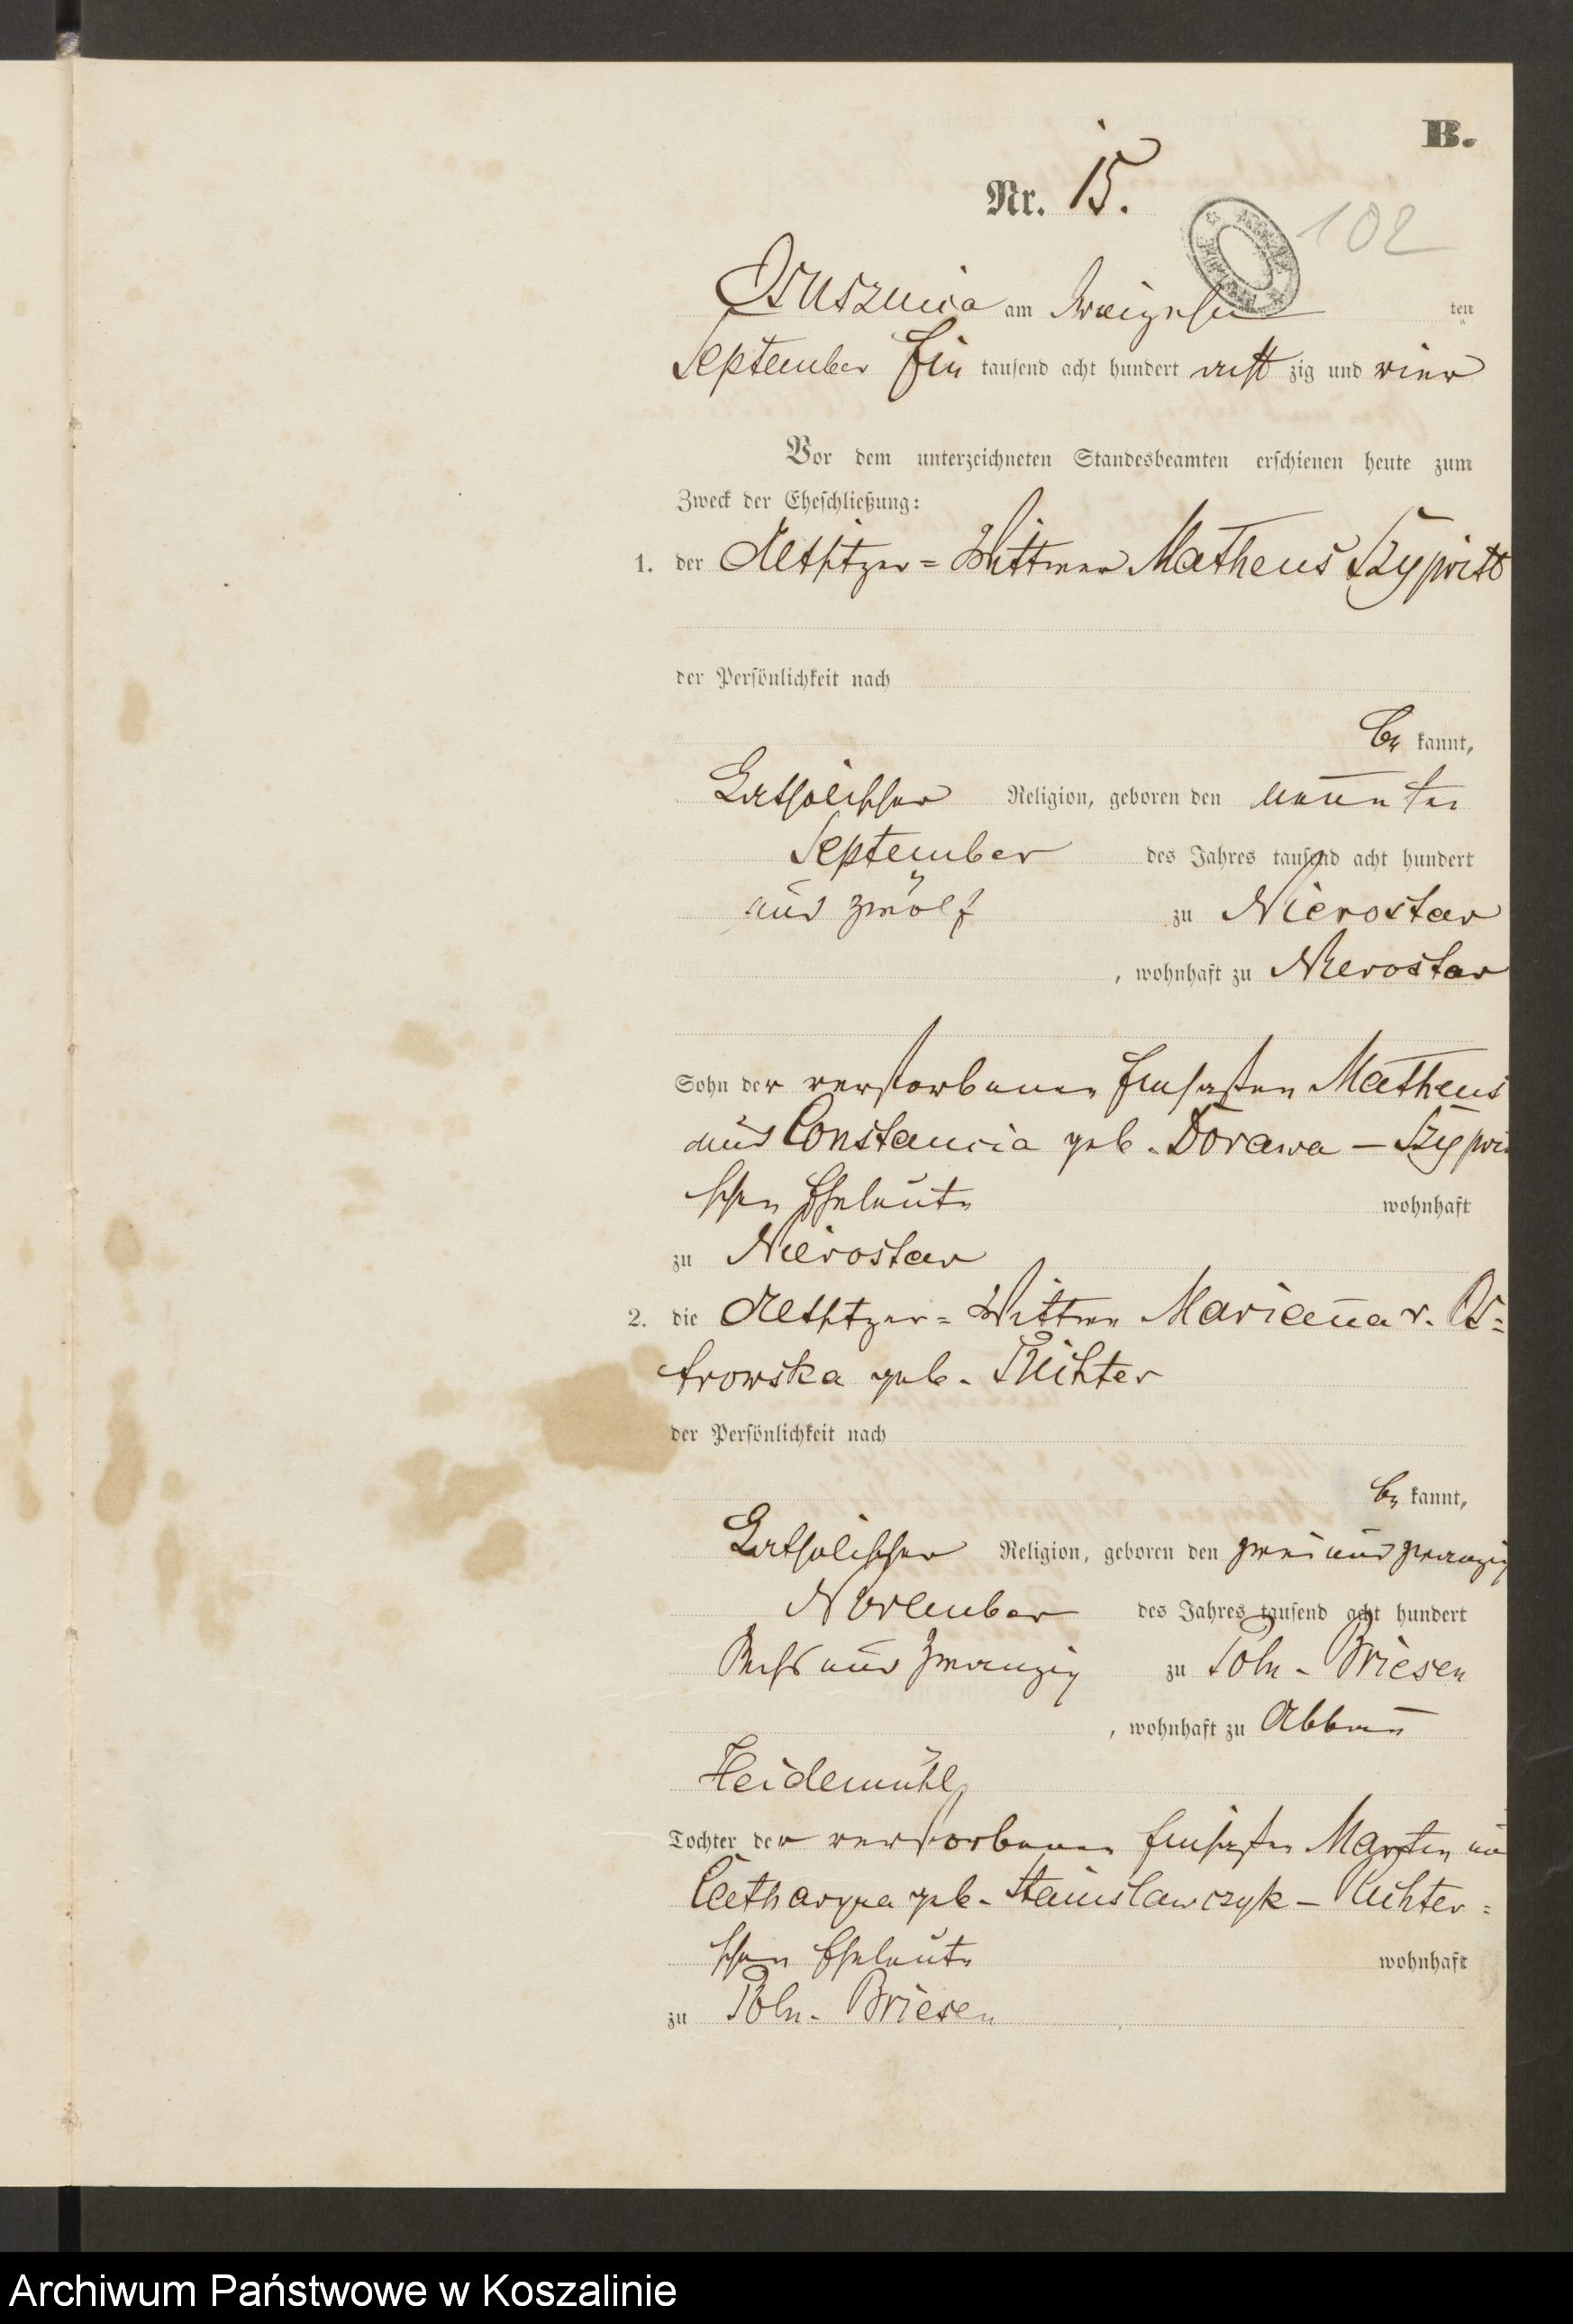 B.
Nr. 15.
102
Osuszniza am Dreizehn ten
September Ein tausend acht hundert acht zig und vier
Vor dem unterzeichneten Standesbeamten erschienen heute zum
Zweck der Eheschließung:
1. der Altsitzer=Wittwer Matheus
der Persönlichkeit nach
be kannt,
Katholischer Religion, geboren den neunten
September des Jahres tausend acht hundert
und zwölf zu Nierostaw
, wohnhaft zu Nierostaw
Sohn der verstorbenen Einsaßen Matheus
und Constancia geb. Dorawa –
schen Eheleute wohnhaft
zu Nierostaw
2. die Altsitzer=Wittwe Marianna v. Os=
trowska geb. Richter
der Persönlichkeit nach
be kannt,
Katholischer Religion, geboren den zwei und zwanzig
November des Jahres tausend acht hundert
sechs und zwanzig zu Poln. Briesen
, wohnhaft zu Abbau
Heidemühl
Tochter der verstorbenen Einsaßen Martin
Catharyna geb. Stanislawczyk – Richter=
schen Eheleute wohnhaft
zu Poln. Briesen
Archiwum Państwowe w Koszalinie